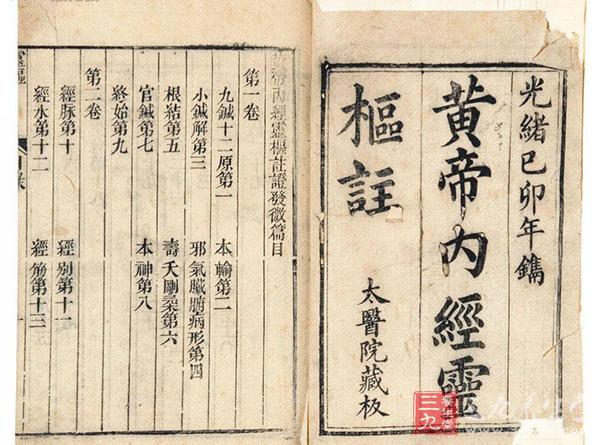 光緒己卯年鐫
黃帝內經靈
樞註
太醫院藏板
三九
黃帝內經靈樞註證發微篇目
第一卷
九鍼十二原第一 本輸第二
小鍼解第三 邪氣臟腑病形第四
根結第五 壽夭剛柔第六
官鍼第七 本神第八
終始第九
第二卷
經脉第十 經別第十一
經水第十二 經筋第十三